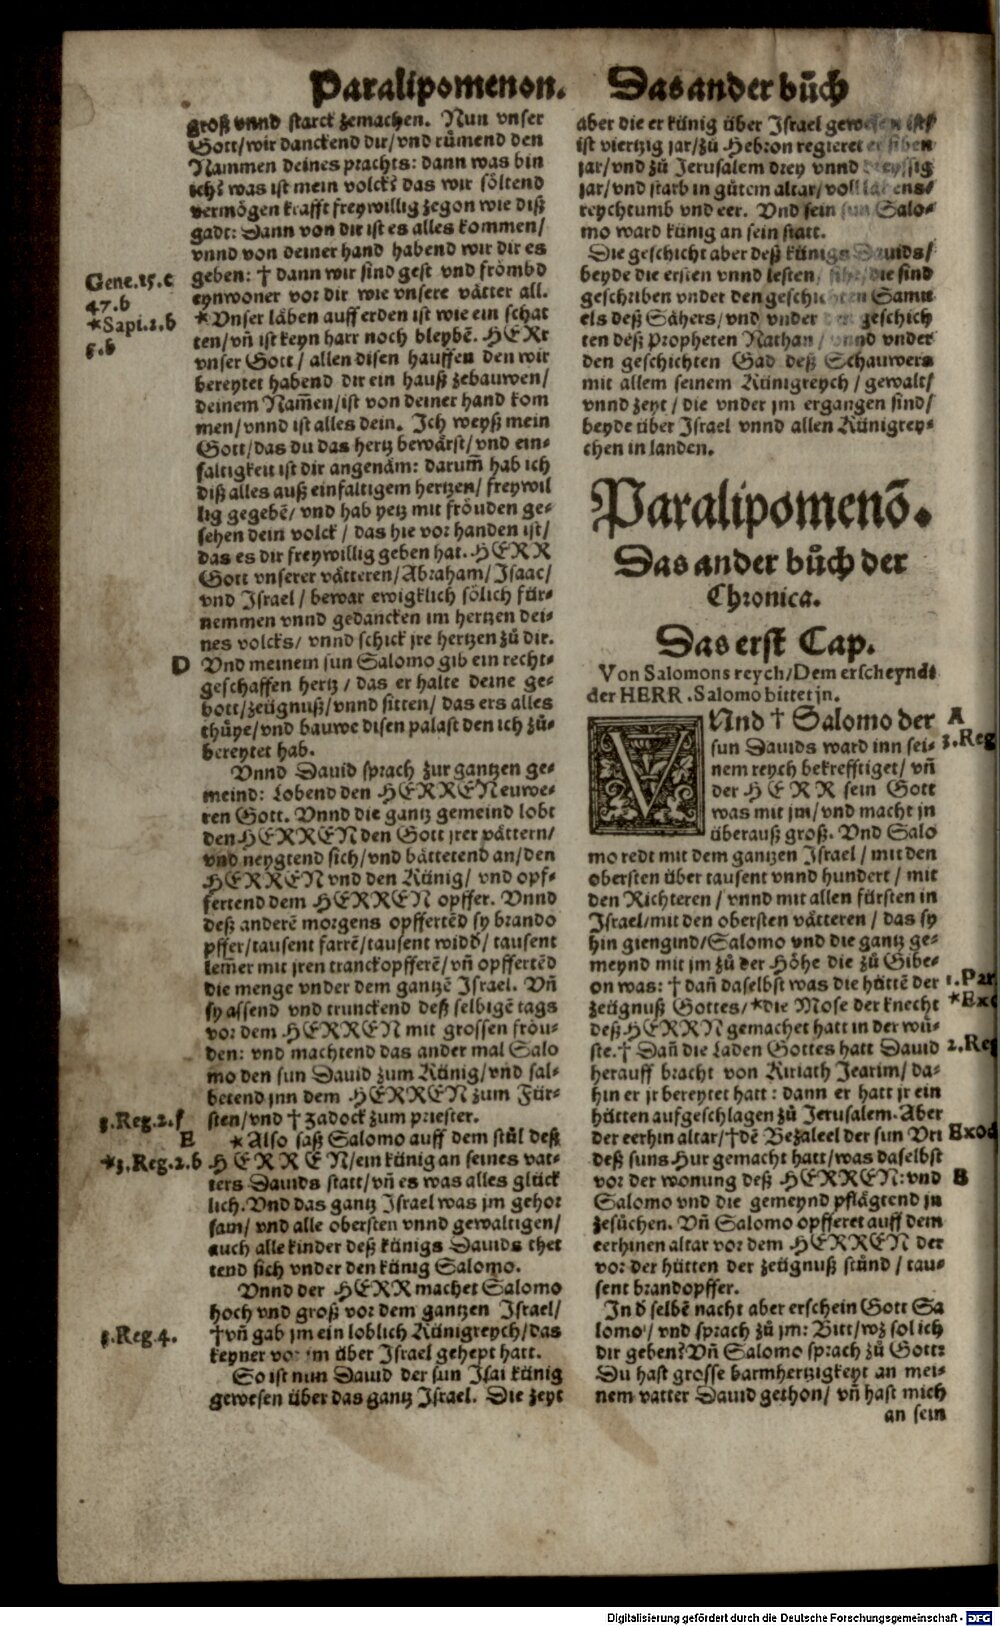 Paralipomenon. Das ander bůch
groß vnnd starck zemachen. Nun vnser
Gott/wir danckend dir/vnd rümend den
Nammen deines prachts: dann was bin
ich? was ist mein volck? das wir söltend
vermögen krafft freywillig zegon wie diß
gadt: Dann von dir ist es alles kommen/
vnnd von deiner hand habend wir dir es
Gene.15.c
geben: † dann wir sind gest vnd frömbd
47.b
eynwoner vor dir wie vnsere vätter all.
*Sapi.2.b
*Vnser läben auff erden ist wie ein schat
5.b
ten/vñ ist keyn harr noch bleybẽ. HERr
vnser Gott/allen disen hauffen den wir
bereytet habend dir ein hauß zebauwen/
deinem Nam̃en/ist von deiner hand kom
men/vnnd ist alles dein. Ich weyß mein
Gott/das du das hertz bewärst/vnd ein-
faltigkeit ist dir angenäm: darum̃ hab ich
diß alles auß einfaltigem hertzen/freywil
lig gegebẽ/vnd hab yetz mit fröuden ge-
sehen dein volck/das hie vor handen ist/
das es dir freywillig geben hat. HERR
Gott vnserer vätteren/Abraham/Isaac/
vnd Israel/bewar ewigklich sölich für-
nemmen vnnd gedancken im hertzen dei-
nes volcks/vnnd schick jre hertzen zů dir.
D Vnd meinem sun Salomo gib ein recht-
geschaffen hertz/das er halte deine ge-
bott/zeügnuß/vnnd sitten/das ers alles
thüye/vnd bauwe disen palast den ich zů-
bereytet hab.
Vnnd Dauid sprach zur gantzen ge-
meind: Lobend den HERREN euwe-
ren Gott. Vnnd die gantz gemeind lobt
den HERREN den Gott jrer vättern/
vnd neygtend sich/vnd bättetend an/den
HERREN vnd den Künig/vnd opf-
fertend dem HERREN opffer. Vnnd
deß anderẽ morgens opffertẽd sy brando
pffer/tausent farrẽ/tausent widd̃/tausent
lem̃er mit jren tranckopfferẽ/vñ opffertẽd
die menge vnder dem gantzẽ Israel. Vñ
sy assend vnd trunckend deß selbigẽ tags
vor dem HERREN mit grossen fröu-
den: vnd machtend das ander mal Salo
mo den sun Dauid zum Künig/vnd sal-
betend jnn dem HERREN zum Für-
3.Reg.2.f
sten/vnd † Zadock zum priester.
E
*Also saß Salomo auff dem stůl deß
*3.Reg.2.b
HERREN/ein künig an seines vat-
ters Dauids statt/vñ es was alles glück
lich. Vnd das gantz Israel was jm gehor
sam/vnd alle obersten vnnd gewaltigen/
auch alle kinder deß künigs Dauids thet
tend sich vnder den künig Salomo.
Vnnd der HERR machet Salomo
hoch vnd groß vor dem gantzen Israel/
3.Reg.4.
†vñ gab jm ein loblich Künigreych/das
keyner vor jm über Israel gehept hatt.
So ist nun Dauid der sun Isai künig
gewesen über das gantz Israel. Die zeyt
aber die er künig über Israel gewesen ist/
ist viertzig jar/zů Hebron regieret er siben
jar/vnd zů Jerusalem drey vnnd dreyssig
jar/vnd starb in gůtem altar/voll läbens/
reychtumb vnd eer. Vnd sein sun Salo-
mo ward künig an sein statt.
Die geschicht aber deß künigs Dauids/
beyde die ersten vnnd lesten, sihe/die sind
geschriben vnder den geschichten Samu
els deß Sähers/vnd vnder den geschich
ten deß Propheten Nathan/vnnd vnder
den geschichten Gad deß Schauwers
mit allem seinem Künigreych/gewalt/
vnnd zeyt/die vnder jm ergangen sind/
beyde über Israel vnnd allen Künigrey-
chen in landen.
Paralipomenõ.
Das ander bůch der
Chronica.
Das erst Cap.
Von Salomons reych/Dem erscheyndt
der HERR. Salomo bittet jn.
VNnd † Salomo der A
sun Dauids ward inn sei- 3.Reg
nem reych bekrefftiget/vñ
der HERR sein Gott
was mit jm/vnd macht jn
überauß groß. Vnd Salo
mo redt mit dem gantzen Israel/mit den
obersten über tausent vnnd hundert/mit
den Richteren/vnnd mit allen fürsten in
Israel/mit den obersten vätteren/das sy
hin giengind/Salomo vnd die gantz ge-
meynd mit jm zů der Höhe die zů Gibe-
on was: † dañ daselbst was die hütte der 1.Par
zeügnuß Gottes/*die Mose der knecht *Exo
deß HERRN gemachet hatt in der wü-
ste.† Dañ die Laden Gottes hatt Dauid 2.Reg
herauff bracht von Kiriath Jearim/da-
hin er jr bereytet hatt: dann er hatt jr ein
hütten aufgeschlagen zů Jerusalem. Aber
der eerhin altar/†dẽ Bezaleel der sun Vri Exod
deß suns Hur gemacht hatt/was daselbst
vor der wonung deß HERREN: vnd B
Salomo vnd die gemeynd pflägtend jn
zesůchen. Vñ Salomo opfferet auff dem
eerhinen altar vor dem HERREN der
vor der hütten der zeügnuß stůnd/tau-
sent brandopffer.
In d̃ selbẽ nacht aber erschein Gott Sa
lomo/vnd sprach zů jm: Bitt/wz sol ich
dir geben? Vñ Salomo sprach zů Gott:
Du hast grosse barmhertzigkeyt an mei-
nem vatter Dauid gethon/vñ hast mich
an sein
Digitalisierung gefördert durch die Deutsche Forschungsgemeinschaft - DFG